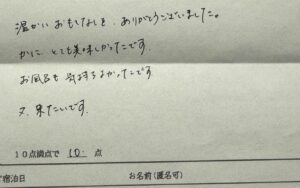 温かいおもてなしを、ありがとうございました。
かに、とても美味しかったです。
お風呂も気持ちよかったです
又、来たいです。
10点満点で 10. 点
宿泊日 お名前(匿名可)